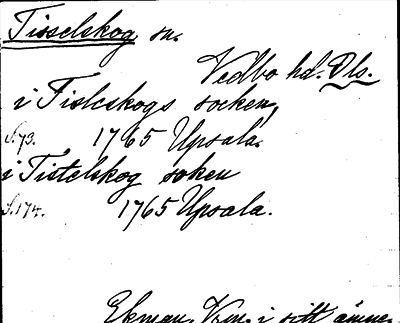 Tisselskog sn.
Vedbo hd. Dls.
i Fisleskogs socken,
S. 73. 1765 Upsala.
i Tistelskog soken
S. 174. 1765 Upsala.
Ekman, i sitt ämne